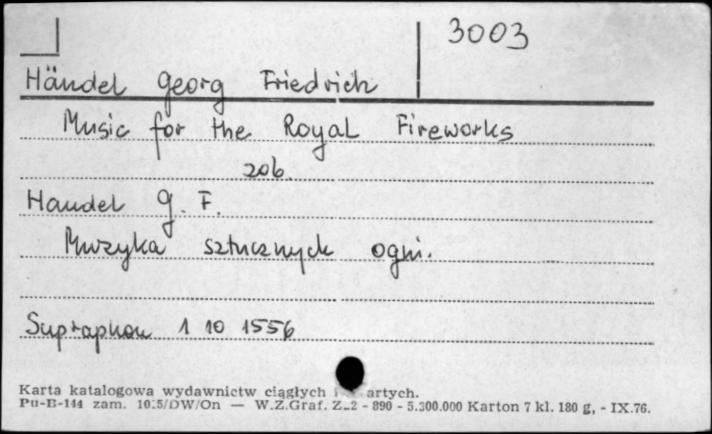 3003
Händel Georg Friedrich
Music for the Royal Fireworks
zob.
Handel G. F.
Muzyka sztucznych ogni.
Supraphon 1 10 1556
Karta katalogowa wydawnictw ciągłych artych.
Pu-B-144 zam. /DW/On — W.Z.Graf. - 890 - 5.300.000 Karton 7 kl. 180 g, - IX.76.